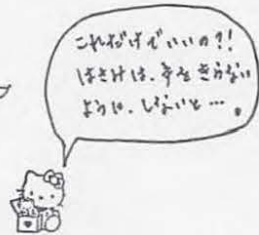 これだけでいいの?!
はさみは、手をきらない
ように、しないと…。